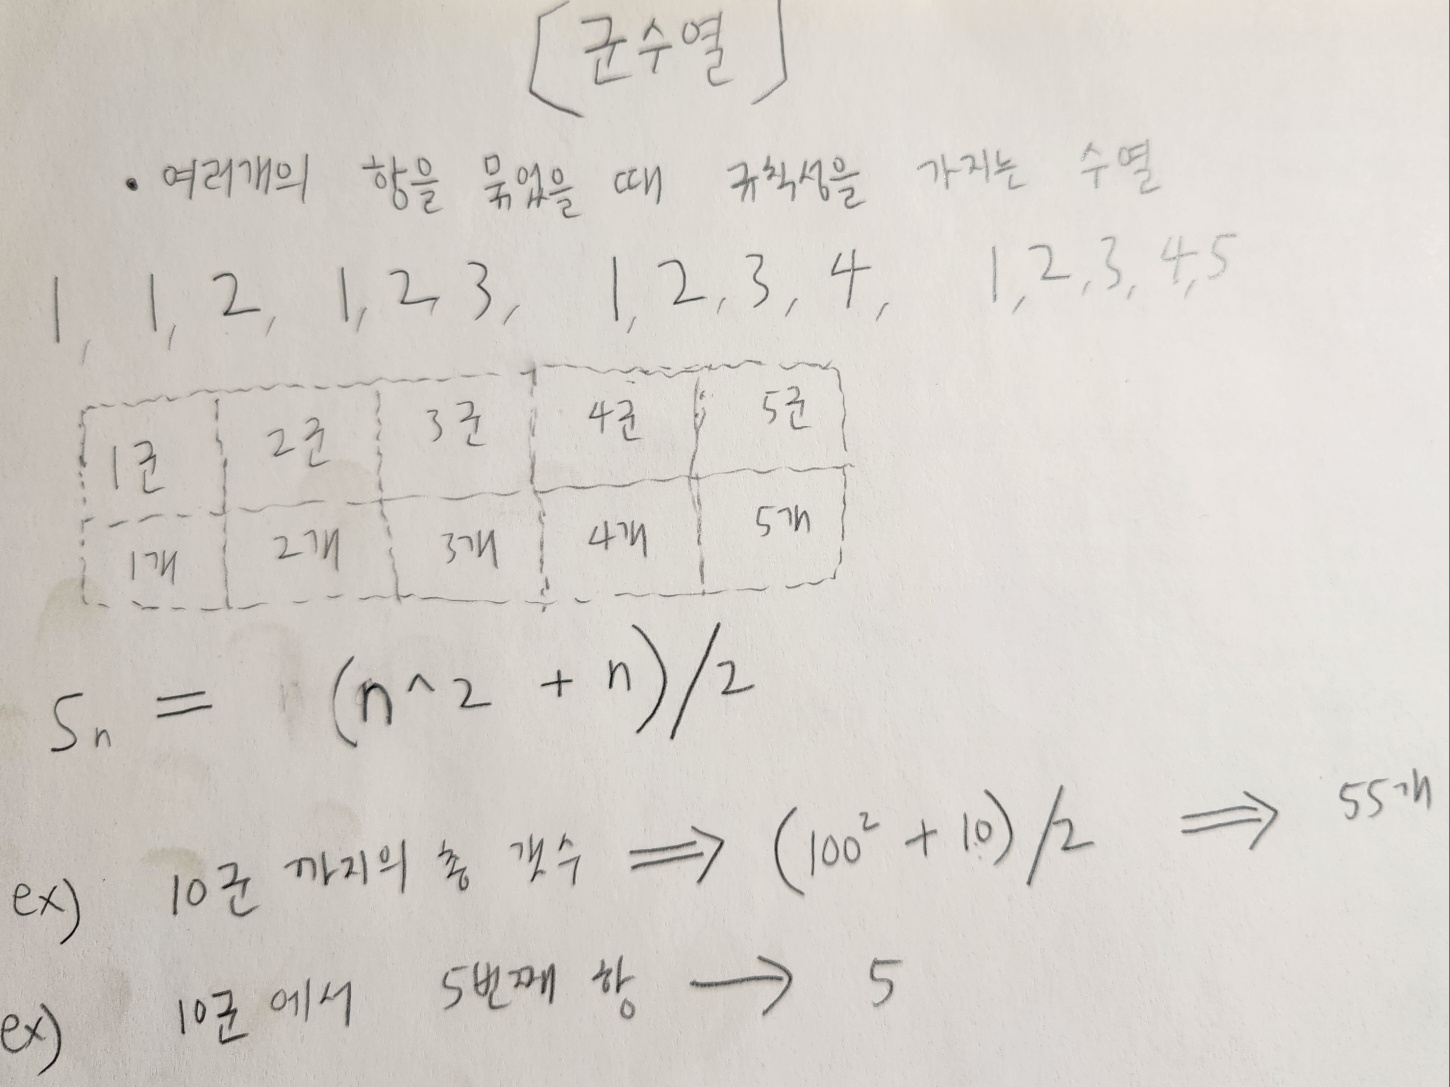 [군수열]
• 여러개의 항을 묶었을 때 규칙성을 가지는 수열
1, 1, 2, 1, 2, 3, 1, 2, 3, 4, 1, 2, 3, 4, 5
1군 2군 3군 4군 5군
1개 2개 3개 4개 5개
Sn = (n^2 + n)/2
ex) 10군 까지의 총 갯수 ⟹ (100² + 10)/2 ⟹ 55개
ex) 10군에서 5번째 항 → 5